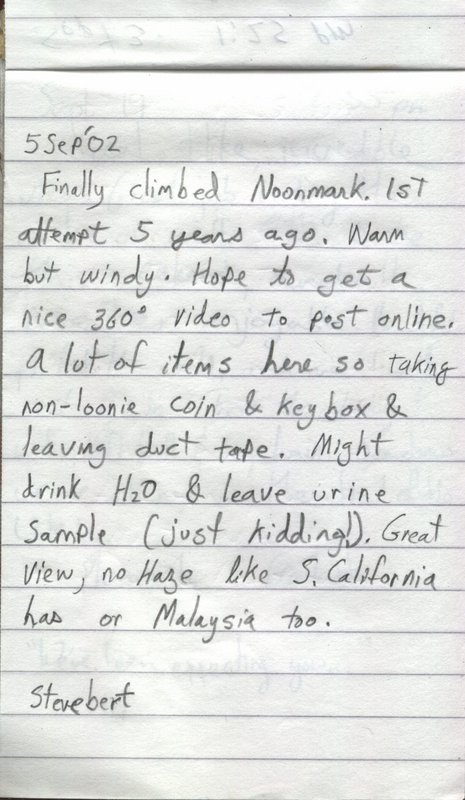 5 Sep '02
Finally climbed Noonmark. 1st
attempt 5 years ago. Warm
but windy. Hope to get a
nice 360° video to post online.
A lot of items here so taking
non-loonie coin & key box &
leaving duct tape. Might
drink H2O & leave urine
sample (just kidding!). Great
view, no Haze like S. California
has or Malaysia too.
Stevebert